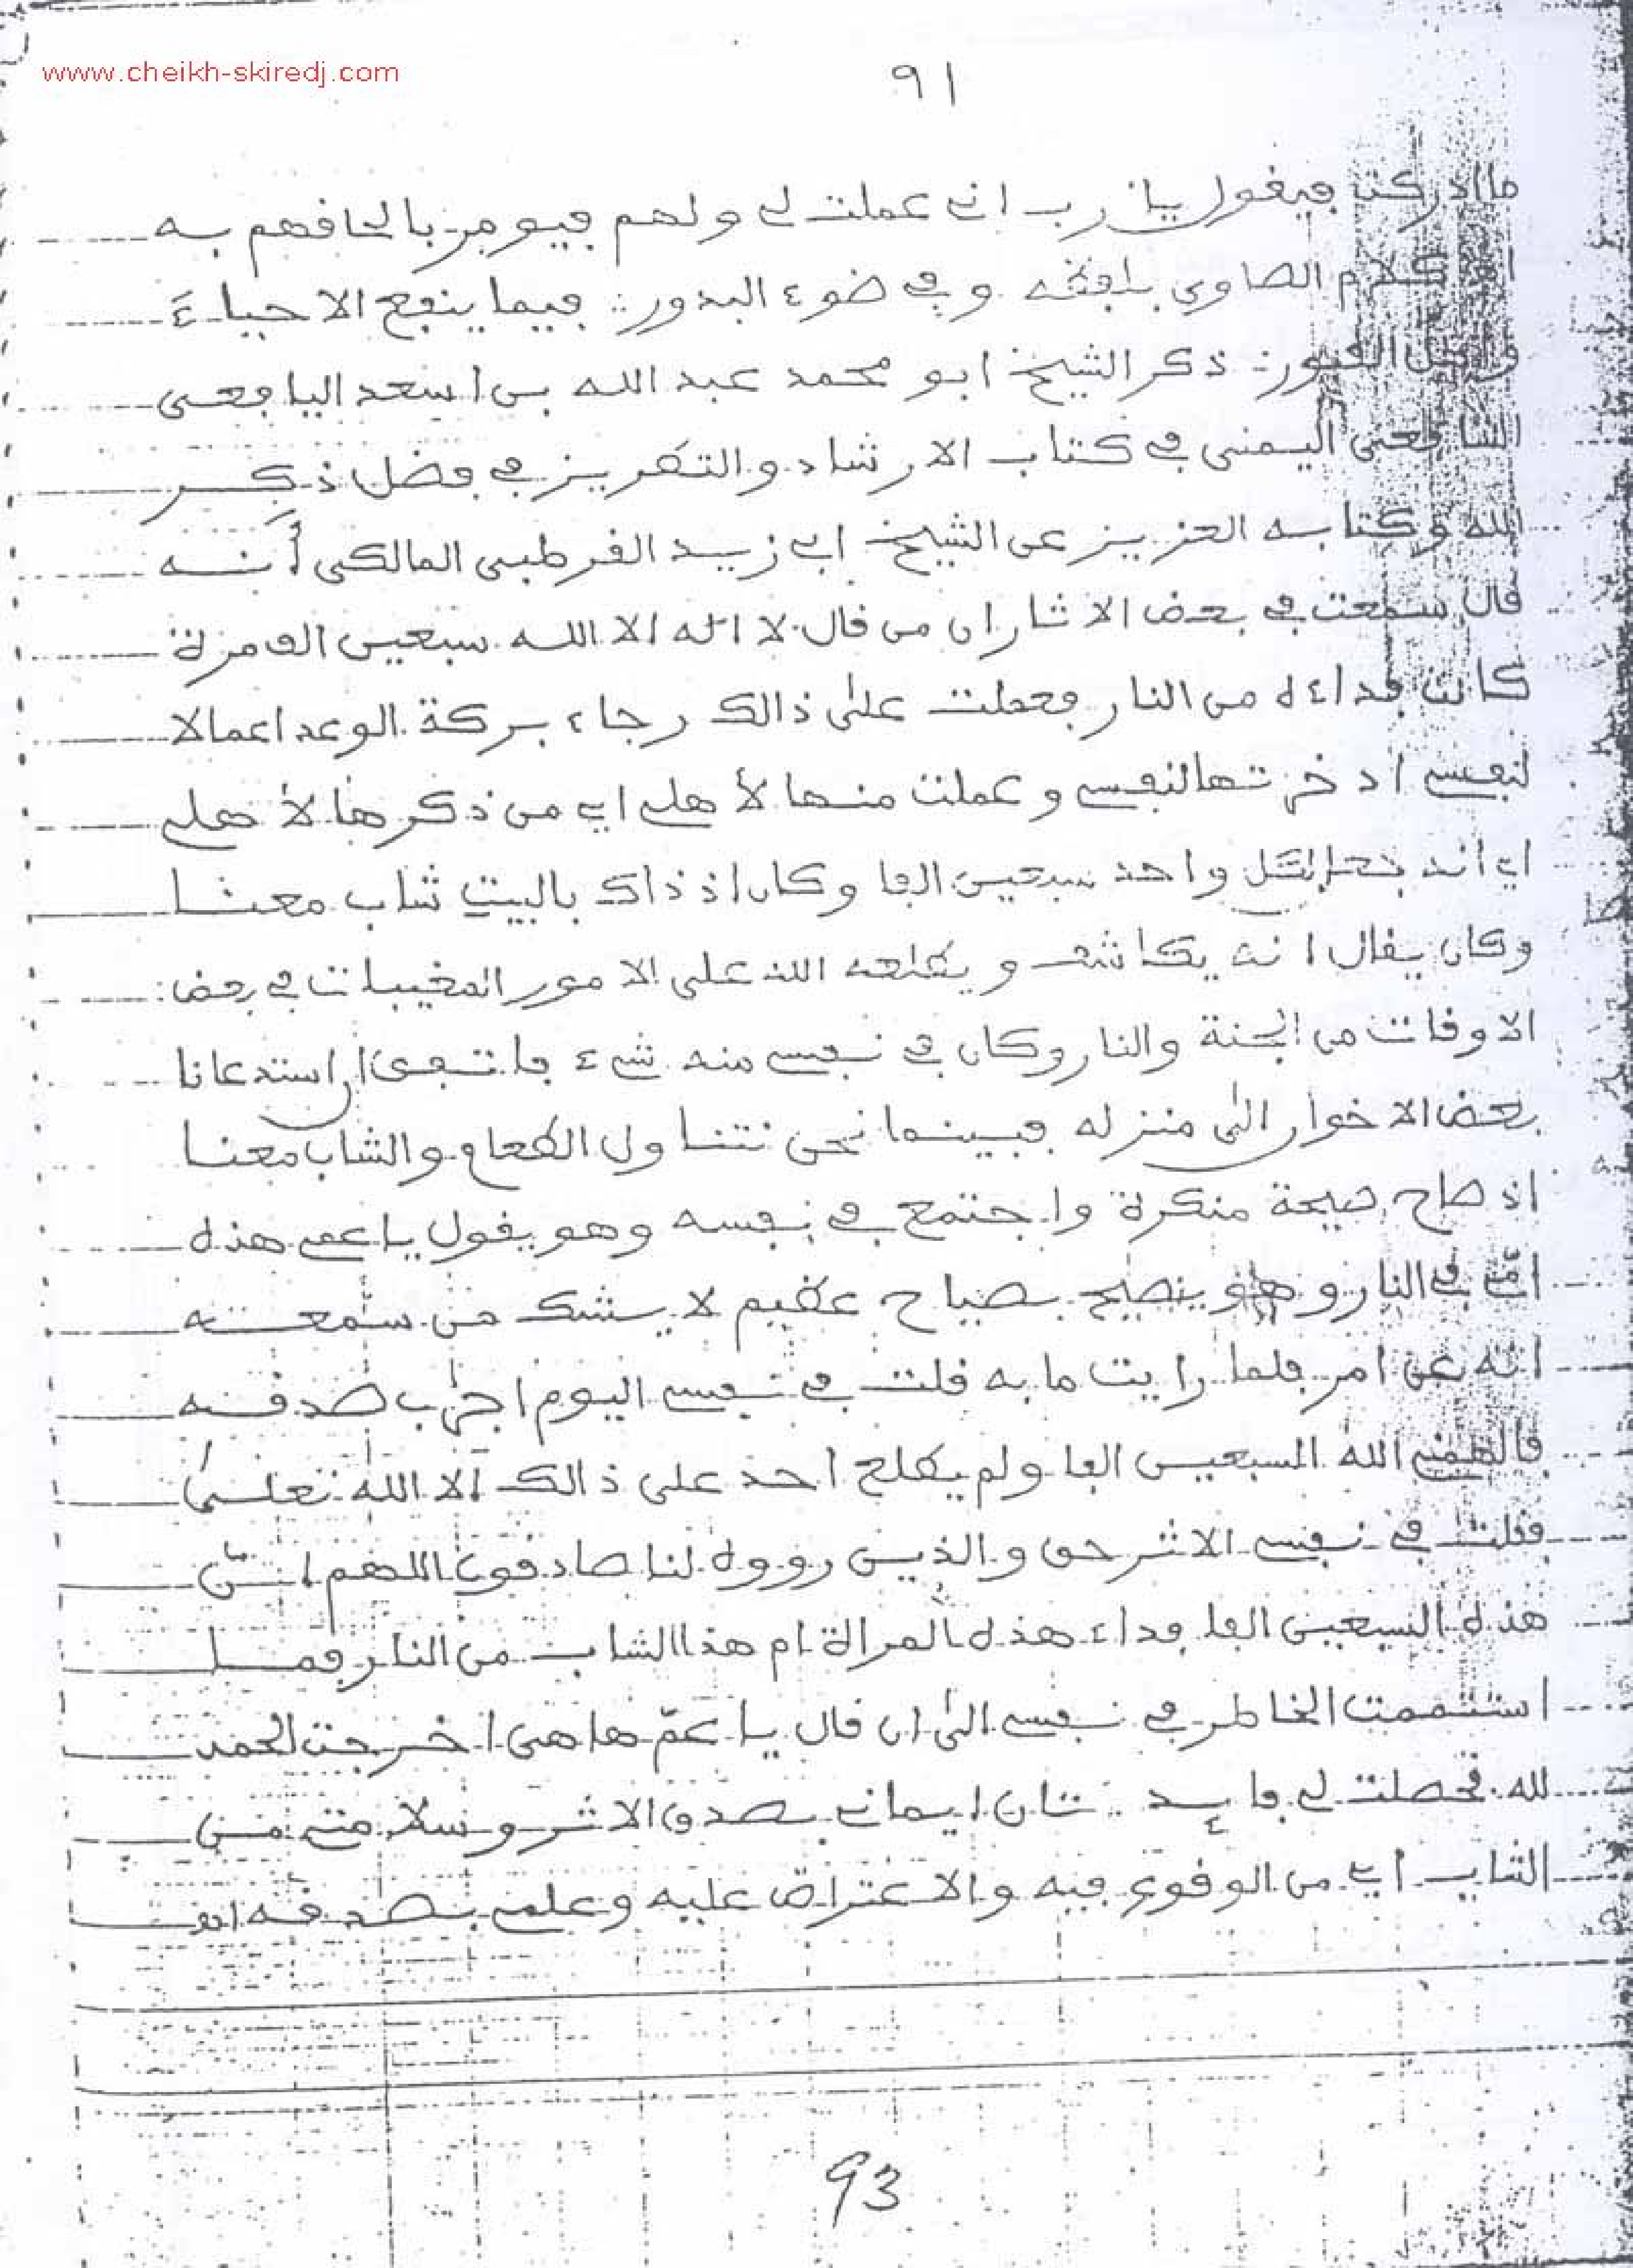 www.cheikh-skiredj.com
٩١
ما ادركت فيقول يا رب انى عملت لى ولهم فيومر بالحافهم به
اهـ كلام الصاوى بلفظه وفى ضوء البدور: فيما ينفع الاحياء
واهل القبور: ذكر الشيخ ابو محمد عبد الله بن اسعد اليافعى
الشافعى اليمنى فى كتاب الارشاد والتطريز فى فضل ذكر
الله وكتابه العزيز عن الشيخ ابى زيد القرطبى المالكى أنه
قال سمعت فى بعض الاثار ان من قال لا اله الا الله سبعين الف مرة
كانت فداءه من النار فعملت على ذالك رجاء بركة الوعد اعمالا
لنفسى ادخرتها لنفسى وعملت منها لأهلى اى من ذكرها لأهلى
اى انه جعل لكل واحد سبعين الفا وكان اذ ذاك بالبيت شاب معنا
وكان يقال انه يكاشف ويطلعه الله على الامور المغيبات فى بعض:
الاوقات من الجنة والنار وكان فى نفسى منه شىء فاتفق ان استدعانا
بعض الاخوان الى منزله فبينما نحن نتناول الطعام والشاب معنا
اذ صاح صيحة منكرة واجتمع فى نفسه وهو يقول يا عمى هذه
امّى فى النار وهو يصيح بصياح عظيم لا يشك من سمعه
انه عن امر فلما رايت ما به قلت فى نفسى اليوم اجرّب صدقه
فالهمنى الله السبعين الفا ولم يطلع احد على ذالك الا الله تعلى
فقلت فى نفسى الاثر حق والذين رووه لنا صادقون اللهم انّ
هذه السبعين الفا فداء هذه المراة ام هذا الشاب من النار فما
استتممت الخاطر فى نفسى الى ان قال يا عمّ ها هى اخرجت الحمد
لله فحصلت لى فايد تان ايمانى بصدق الاثر وسلامتى من
الشاب اى من الوقوع فيه والاعتراض عليه وعلمى بصدقه
93